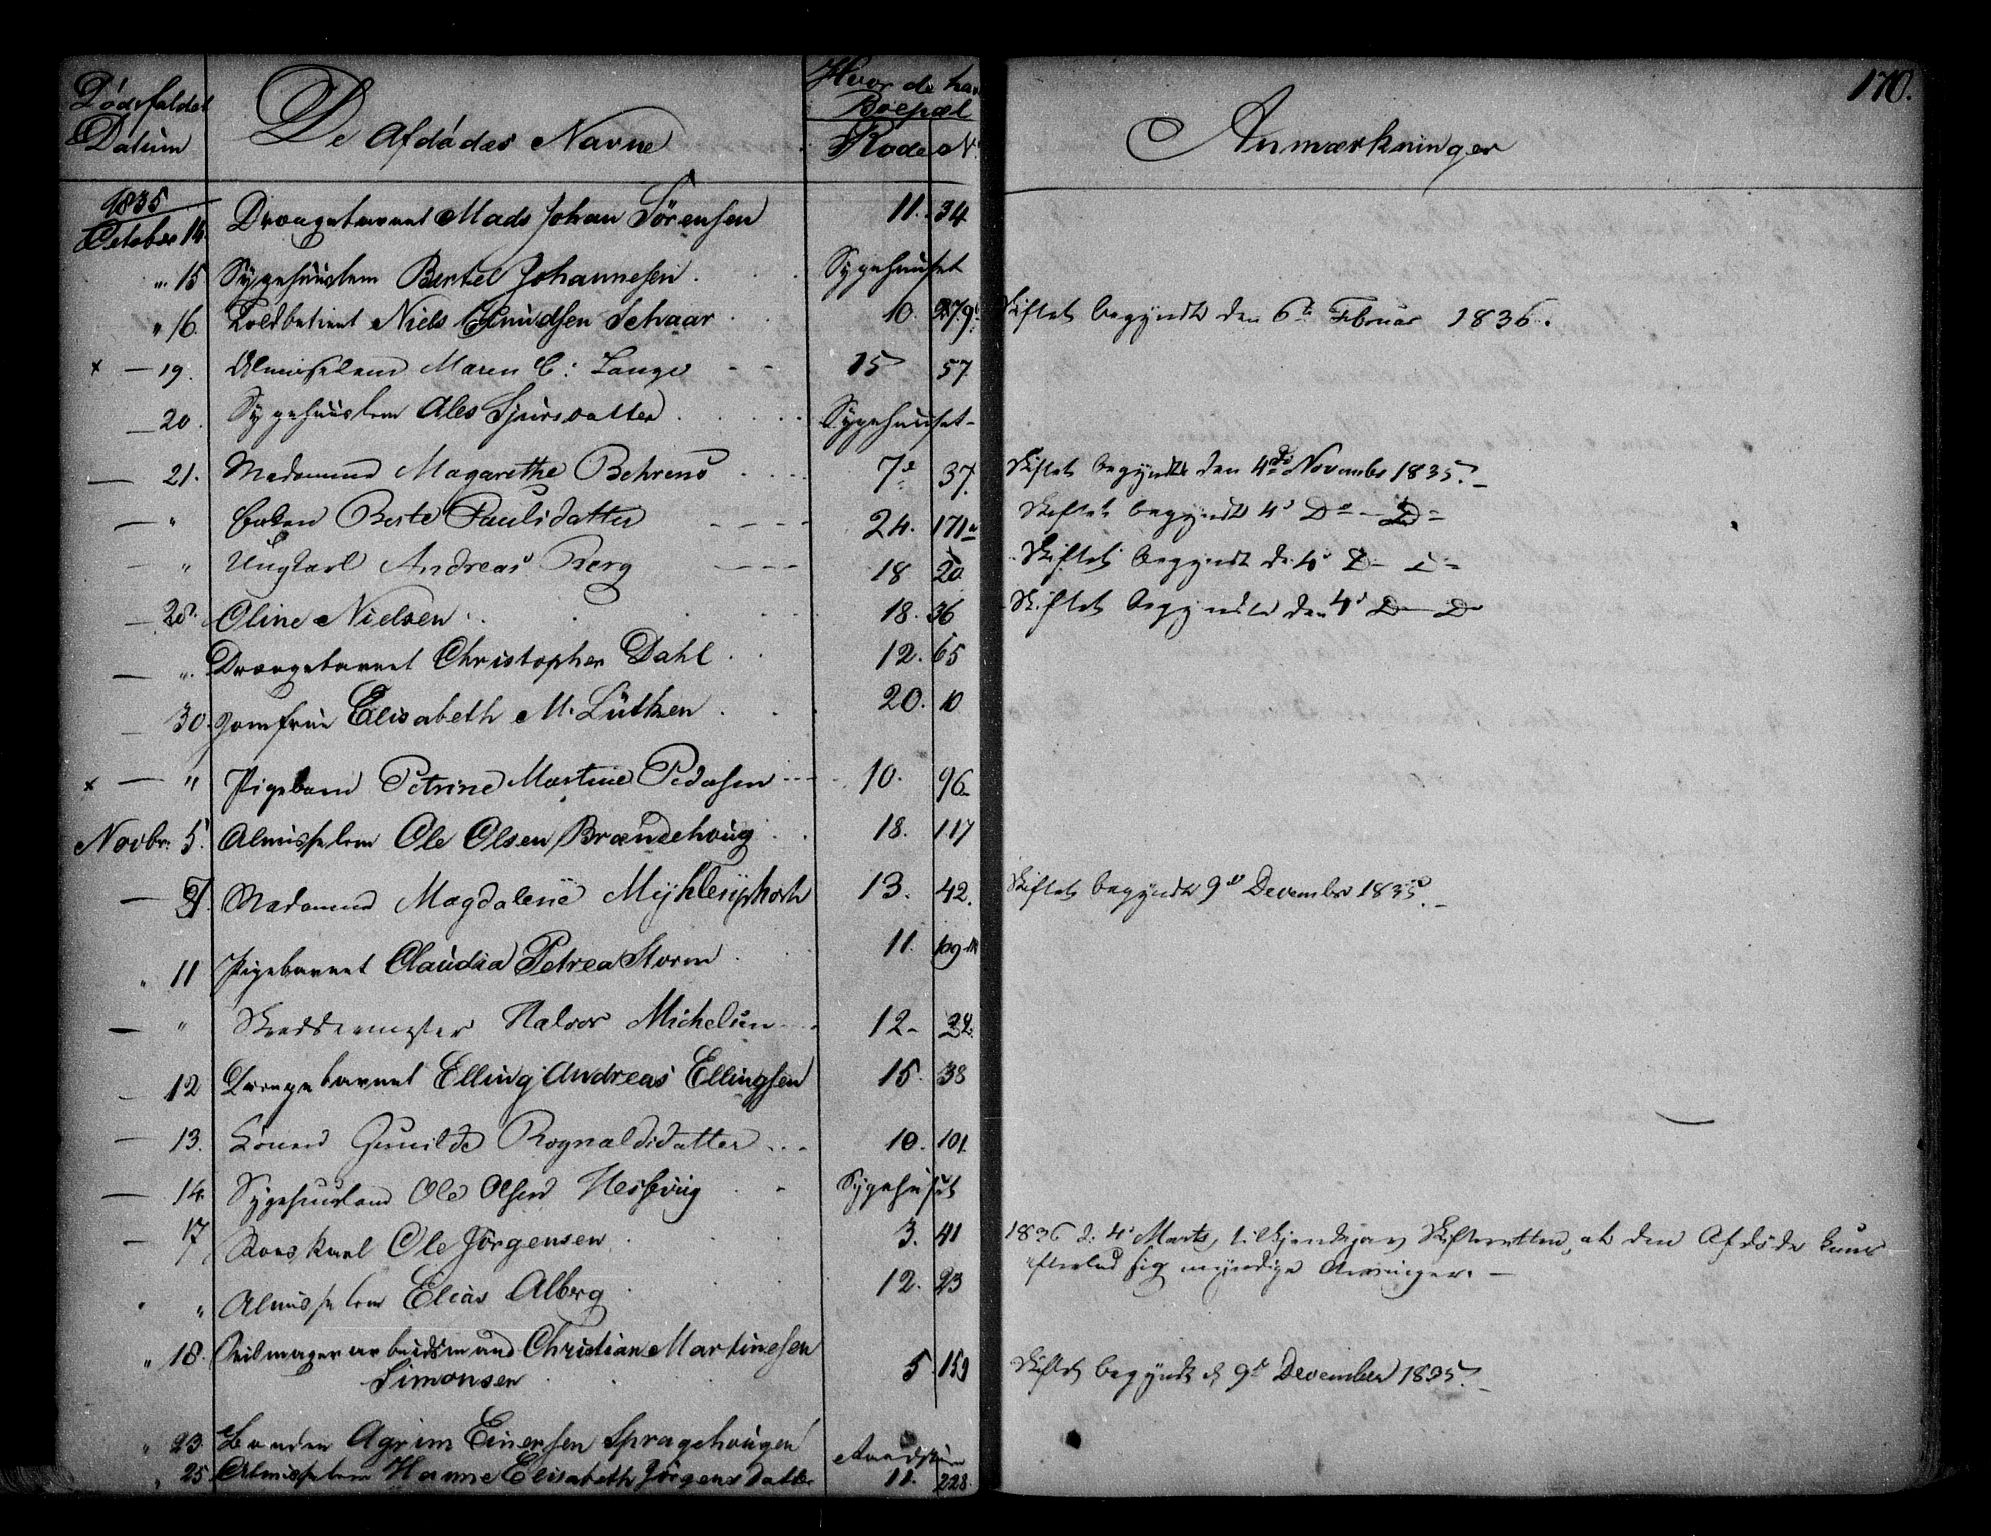 170.
Dødsfaldet Datum
De Afdødes Navne
Hvor de ha Boepæl
Rode No
Anmærkninger
1835
October 14. Drengebarnet Mads Johan Sörensen 11. 34
" 15 Sygehuuslem Bertel Johannesen. Sygehuuset
" 16. Toldbetient Niels Knudsen Schaar 10. 279 Skiftet begyndt den 6te Februar 1836.
x — 19. Almisselem Maren C: Lange 15 57.
— 20. Sygehuuslem Ales Sjursdatter Sygehuuset
— 21. Madamme Magarethe Behrens 7de 37. Skiftet begyndt den 4de Novembr 1835.
— " Enken Berte Paulsdatter 24. 171a Skiftet begyndt 4d Do — Do
— " Ungkarl Andreas Berg 18 20 Skiftet begyndt d: 4d D — D
— 28. Oline Nielsen 18. 36 Skiftet begyndte den 4d D — D
— ". Drengebarnet Christopher Dahl 12. 65
— 30. Jomfrue Elisabeth M. Lütken 20. 10
x — " Pigebarn Petrine Martine Pedersen 10. 96
Novbr. 5. Almisselem Ole Olsen Brandehoug 18. 117
— Madamme Magdalene 13. 42. Skiftet begyndt 9de December 1835.
" 11 Pigebarnet Claudia Petrea Storm 11. 109
— " Skreddermester Halvor Michelsen 12 24.
— 12 Drengebarnet Elling Andreas Ellingsen 15. 38
— 13. Konen Gunilde Rognaldsdatter 10. 101
— 14. Sygehuuslem Ole Olsen Hessevig Sygehuset
— 17 Kaarskarl Ole Jörgensen 3. 41 1836 d: 4d Marts, tilkjendegav Skifteretten, at den Afdøde kuns
efterlod sig myndige Arvinger.
" " Almisselem Elias Alberg 12. 23
" 18. Seilmagerarbeidsmand Christian Martinesen
Simonsen 5. 159 Skiftet begyndt d 9de December 1835.
" 23 Bonden Agrim Einersen Spragehougen
" 25 Almisselem Hanne Elisabeth Jörgensdatter 11. 228.